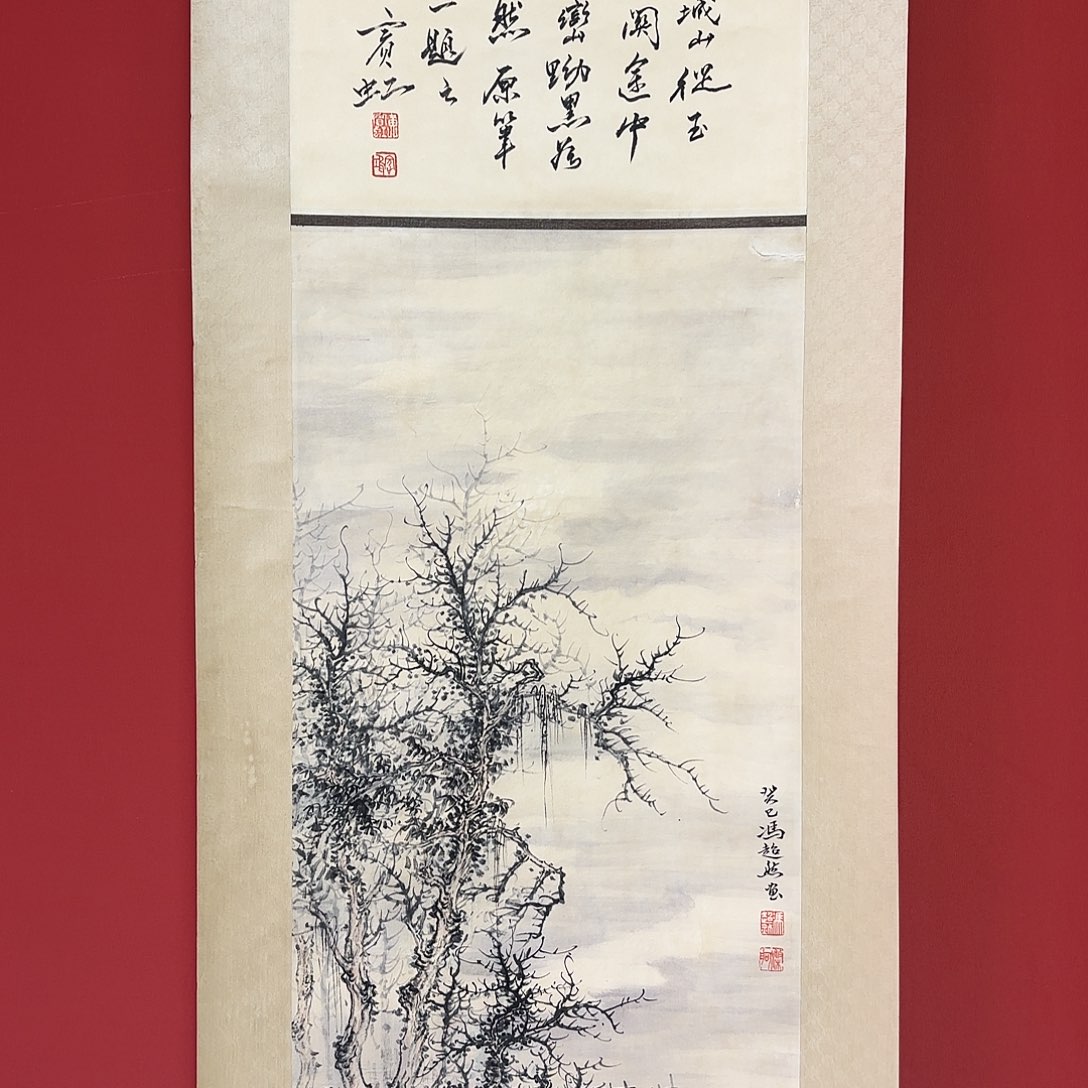 城山從玉
闕途中
巒黝黑
然原筆
一題之
賓虹
癸巳馮超然畫